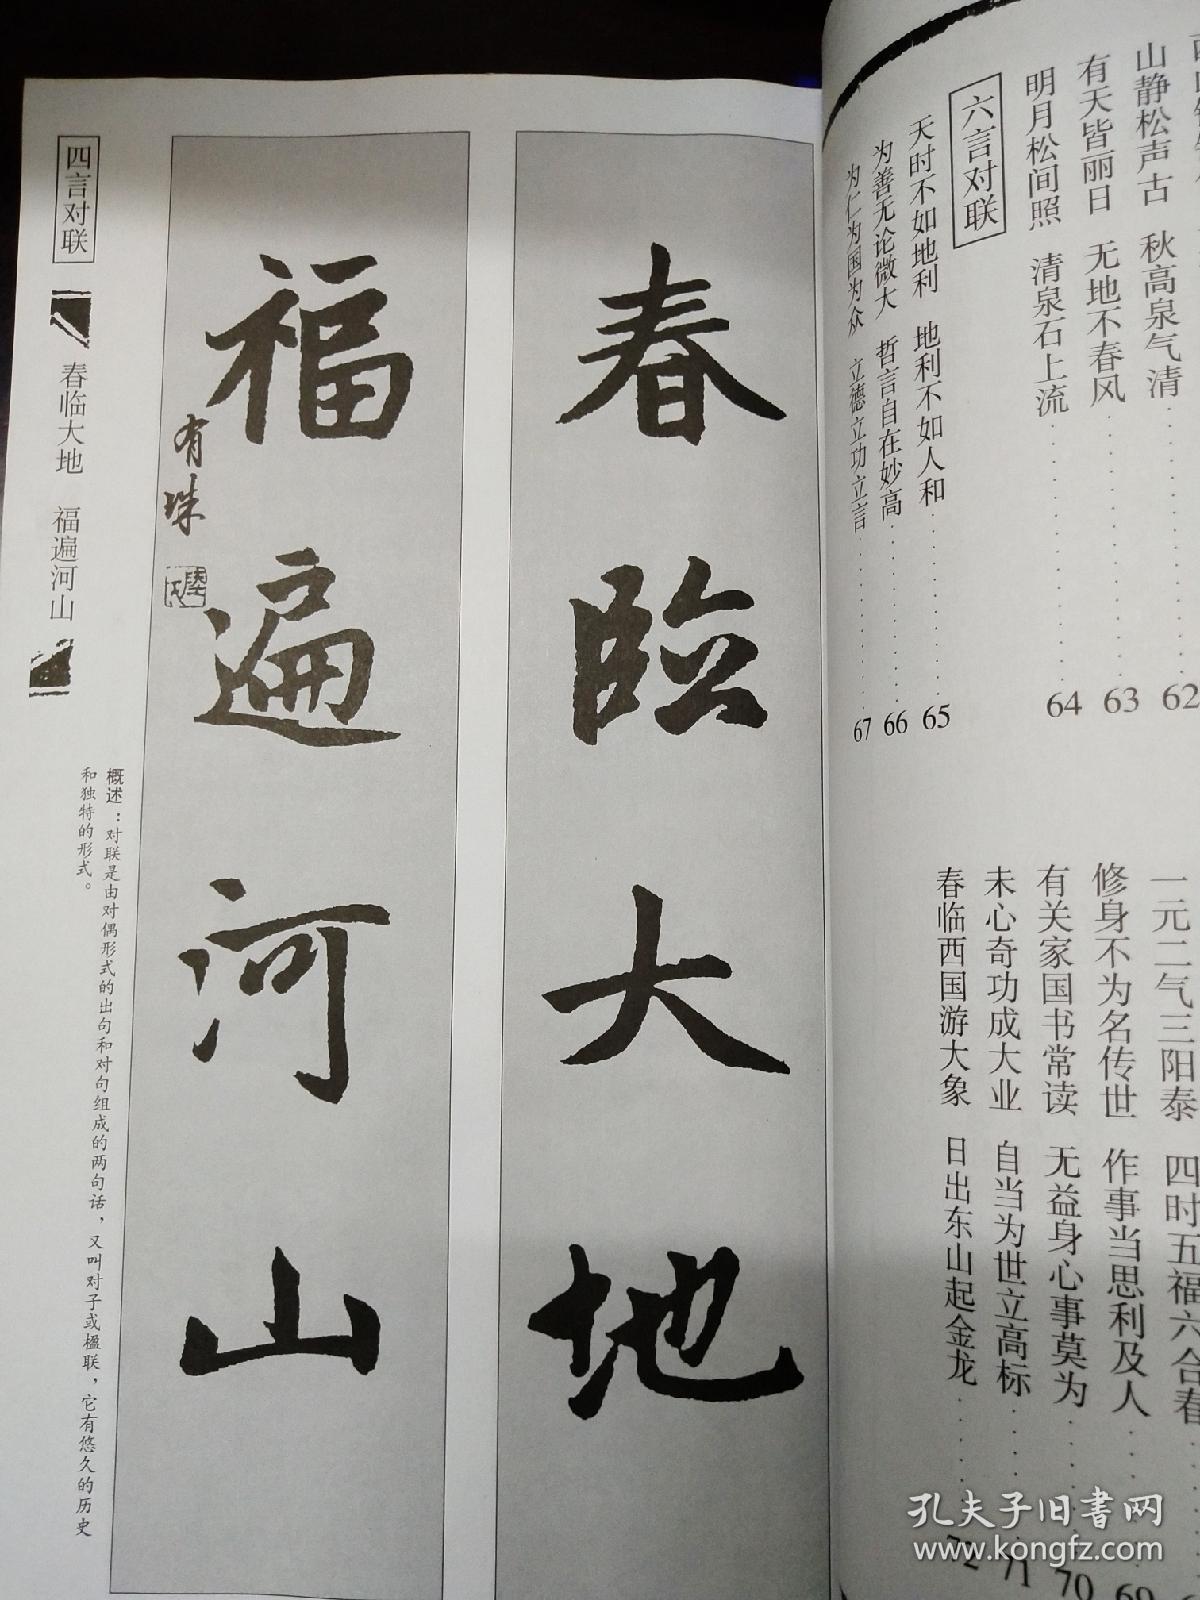 山静松声古 秋高泉气清 62
有天皆丽日 无地不春风 63
明月松间照 清泉石上流 64
六言对联
天时不如地利 地利不如人和 65
为善无论微大 哲言自在妙高 66
为仁为国为众 立德立功立言 67
一元二气三阳泰 四时五福六合春
修身不为名传世 作事当思利及人 69
有关家国书常读 无益身心事莫为 70
未心奇功成大业 自当为世立高标 71
春临西国游大象 日出东山起金龙 72
春临大地
福遍河山
有珠
四言对联
春临大地 福遍河山
概述：对联是由对偶形式的出句和对句组成的两句话，又叫对子或楹联，它有悠久的历史
和独特的形式。
孔夫子旧书网
www.kongfz.com